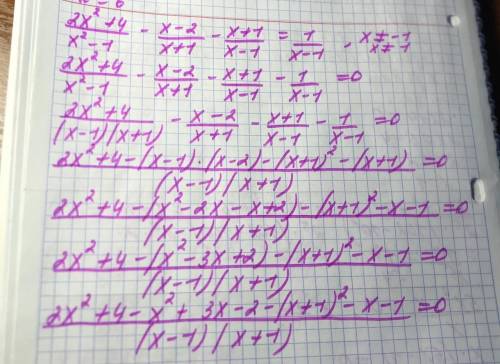 (2x²+4)/(x²-1) - (x-2)/(x+1) - (x+1)/(x-1) = 1/(x-1) , x≠-1
x≠-1
(2x²+4)/(x²-1) - (x-2)/(x+1) - (x+1)/(x-1) - 1/(x-1) =0
(2x²+4)/((x-1)(x+1)) - (x-2)/(x+1) - (x+1)/(x-1) - 1/(x-1) =0
(2x²+4-(x-1)·(x-2)-(x+1)²-(x+1))/((x-1)(x+1)) =0
(2x²+4-(x²-2x-x+2)-(x+1)²-x-1)/((x-1)(x+1)) =0
(2x²+4-(x²-3x+2)-(x+1)²-x-1)/((x-1)(x+1)) =0
(2x²+4-x²+3x-2-(x+1)²-x-1)/((x-1)(x+1)) =0